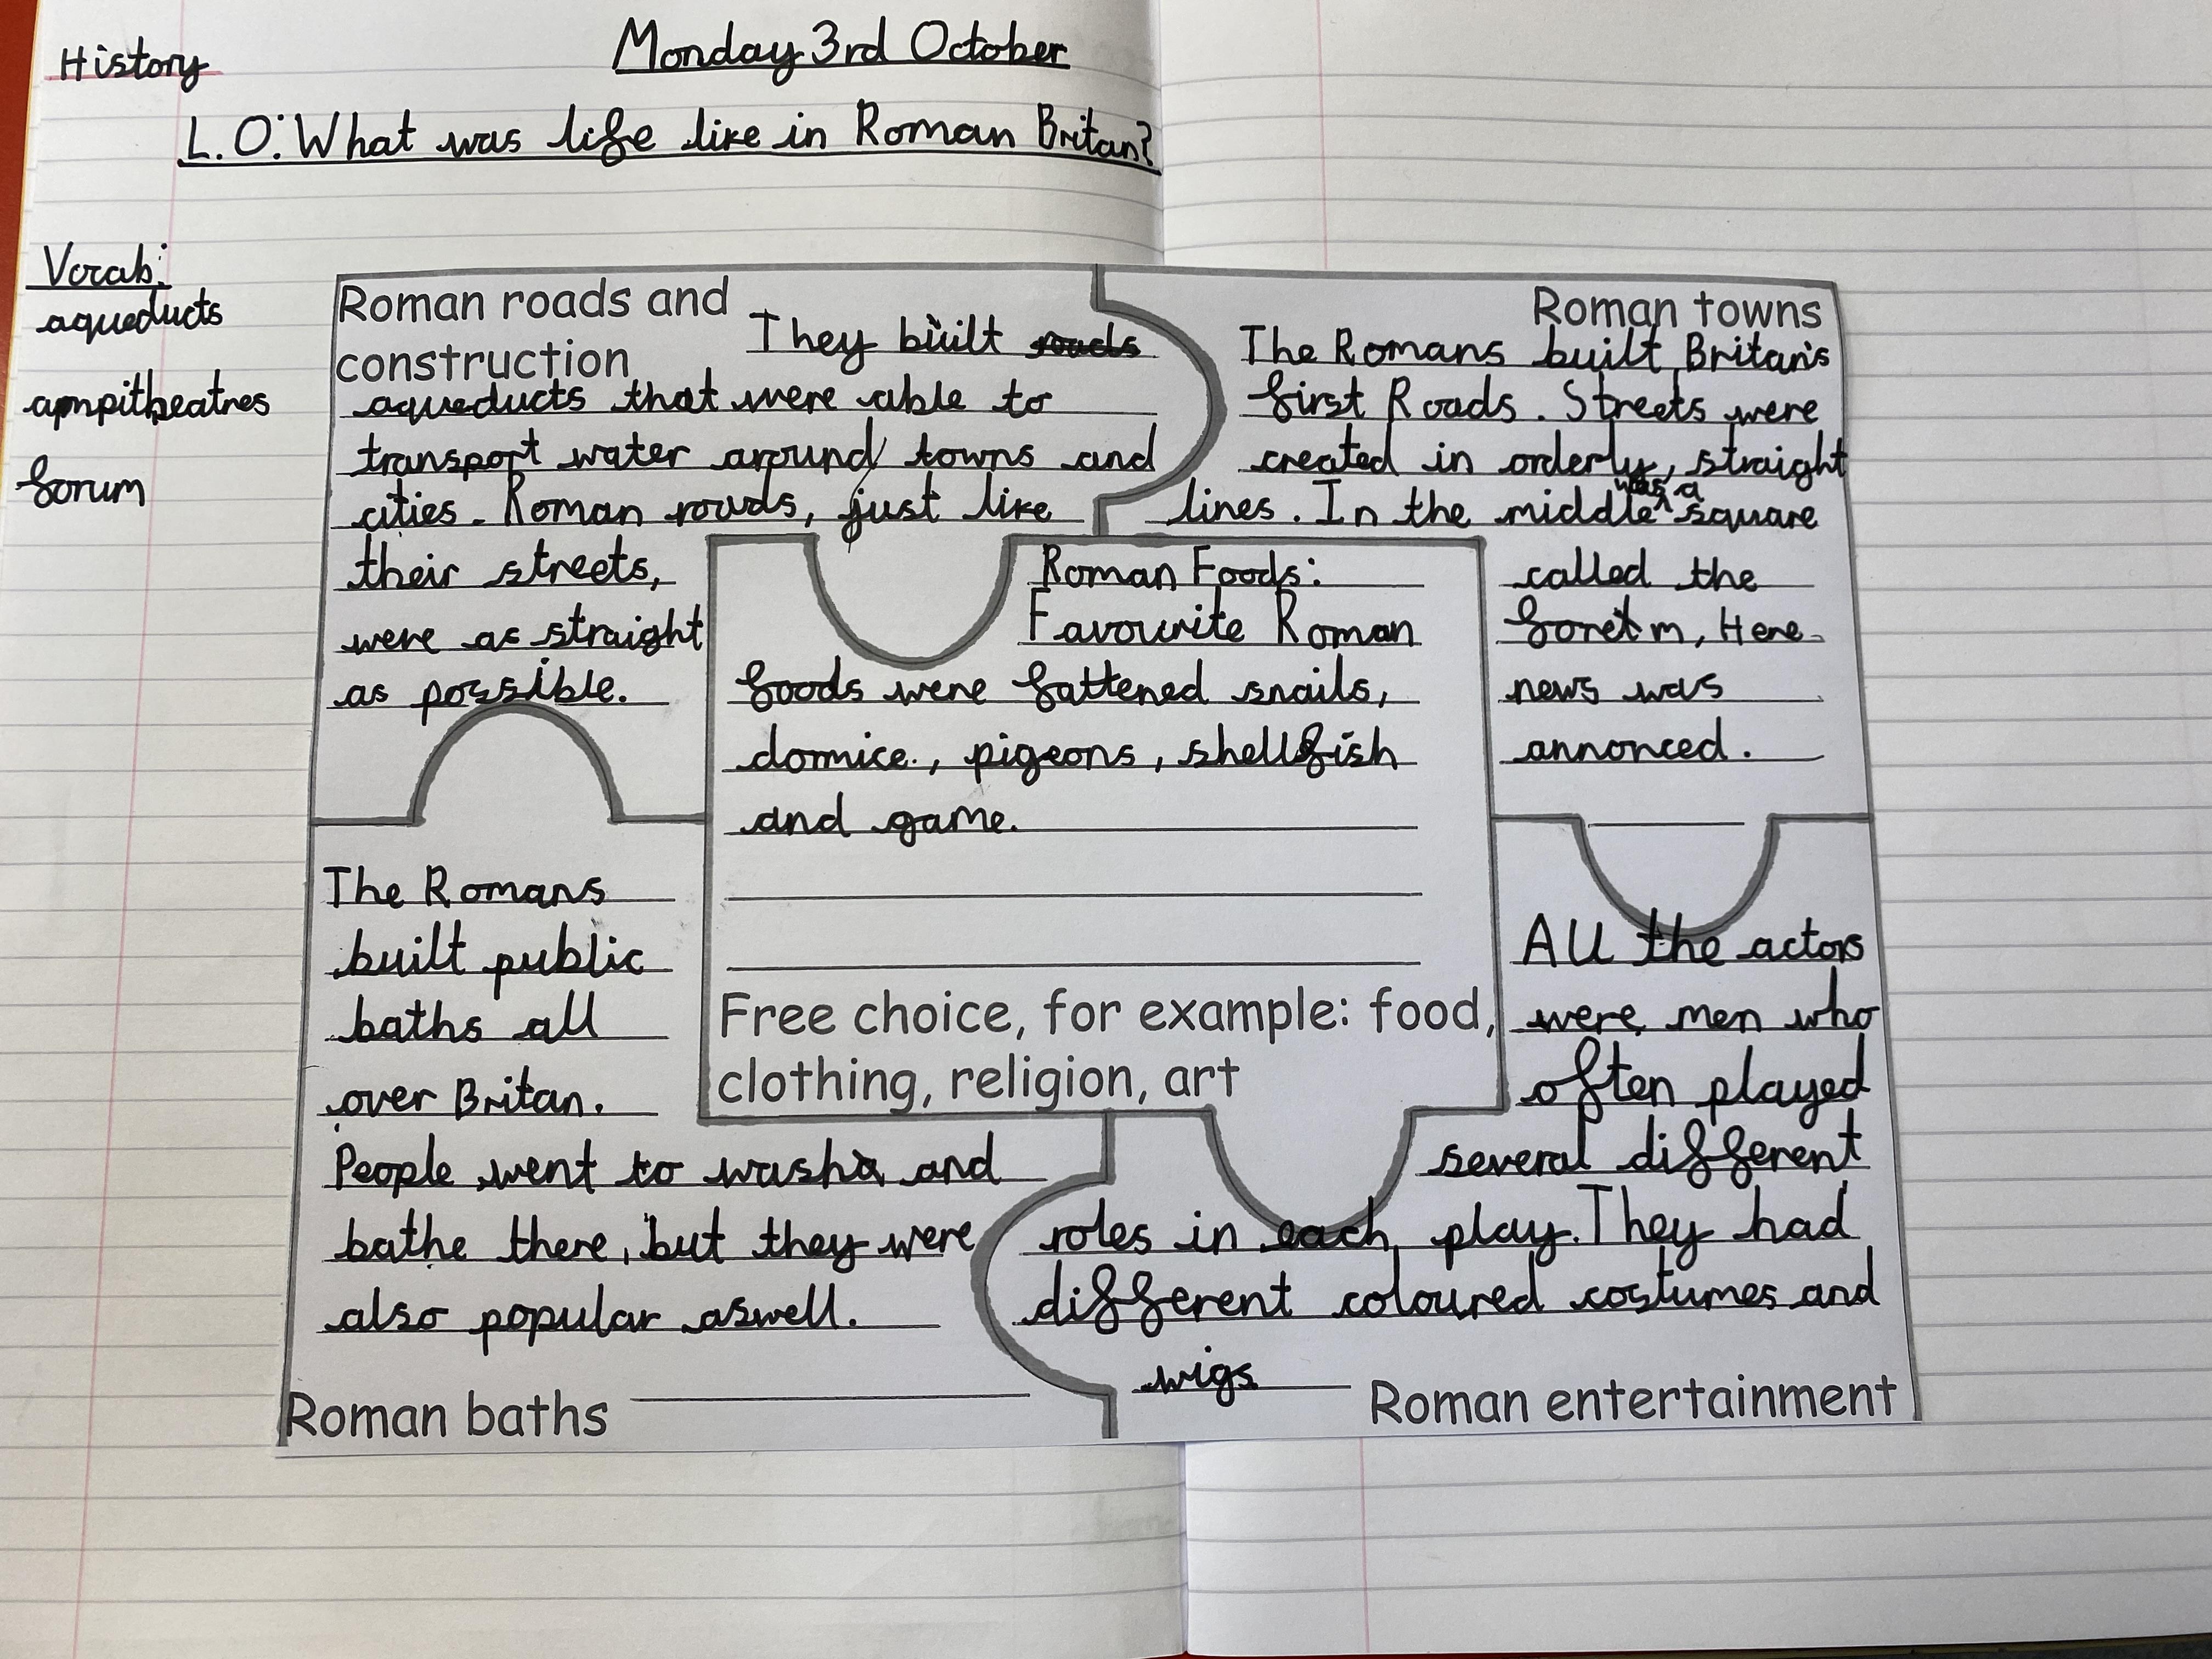 History
Monday 3rd October
L.O: What was life like in Roman Britan?
Vocab:
aqueducts
ampitheatres
forum
Roman roads and
construction
They built roads
aqueducts that were able to
transport water around towns and
cities. Roman roads, just like
their streets,
were as straight
as possible.
Roman towns
The Romans built Britan's
first Roads. Streets were
created in orderly, straight
lines. In the middle was a square
called the
, Here
news was
annonced.
Roman Foods:
Favourite Roman
foods were fattened snails,
dormice, pigeons, shellfish
and game.
Free choice, for example: food,
clothing, religion, art
The Romans
built public
baths all
over Britan.
People went to wash and
bathe there, but they were
also popular aswell.
Roman baths
All the actors
were men who
often played
several different
roles in each play. They had
different coloured costumes and
wigs
Roman entertainment